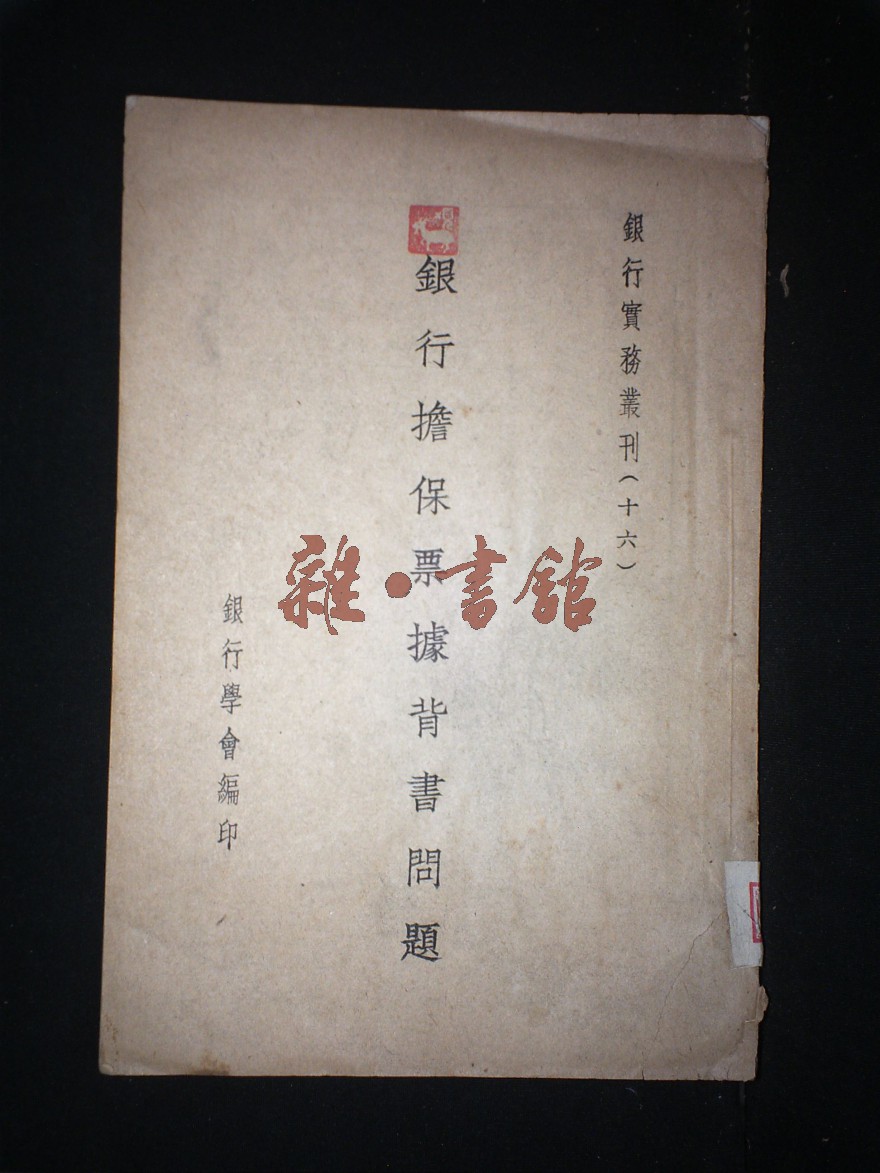 銀行實務叢刊（十六）
銀行擔保票據背書問題
銀行學會編印
雜·書舘